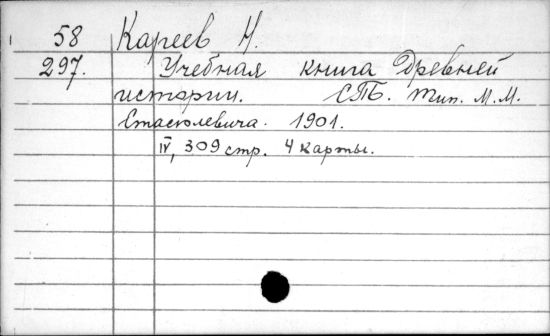 58 Кареев Н.
297. Учебная книга Древней
истории. СПБ. Тип. М.М.
Стасюлевича. 1901.
IV, 309 стр. 4 карты.